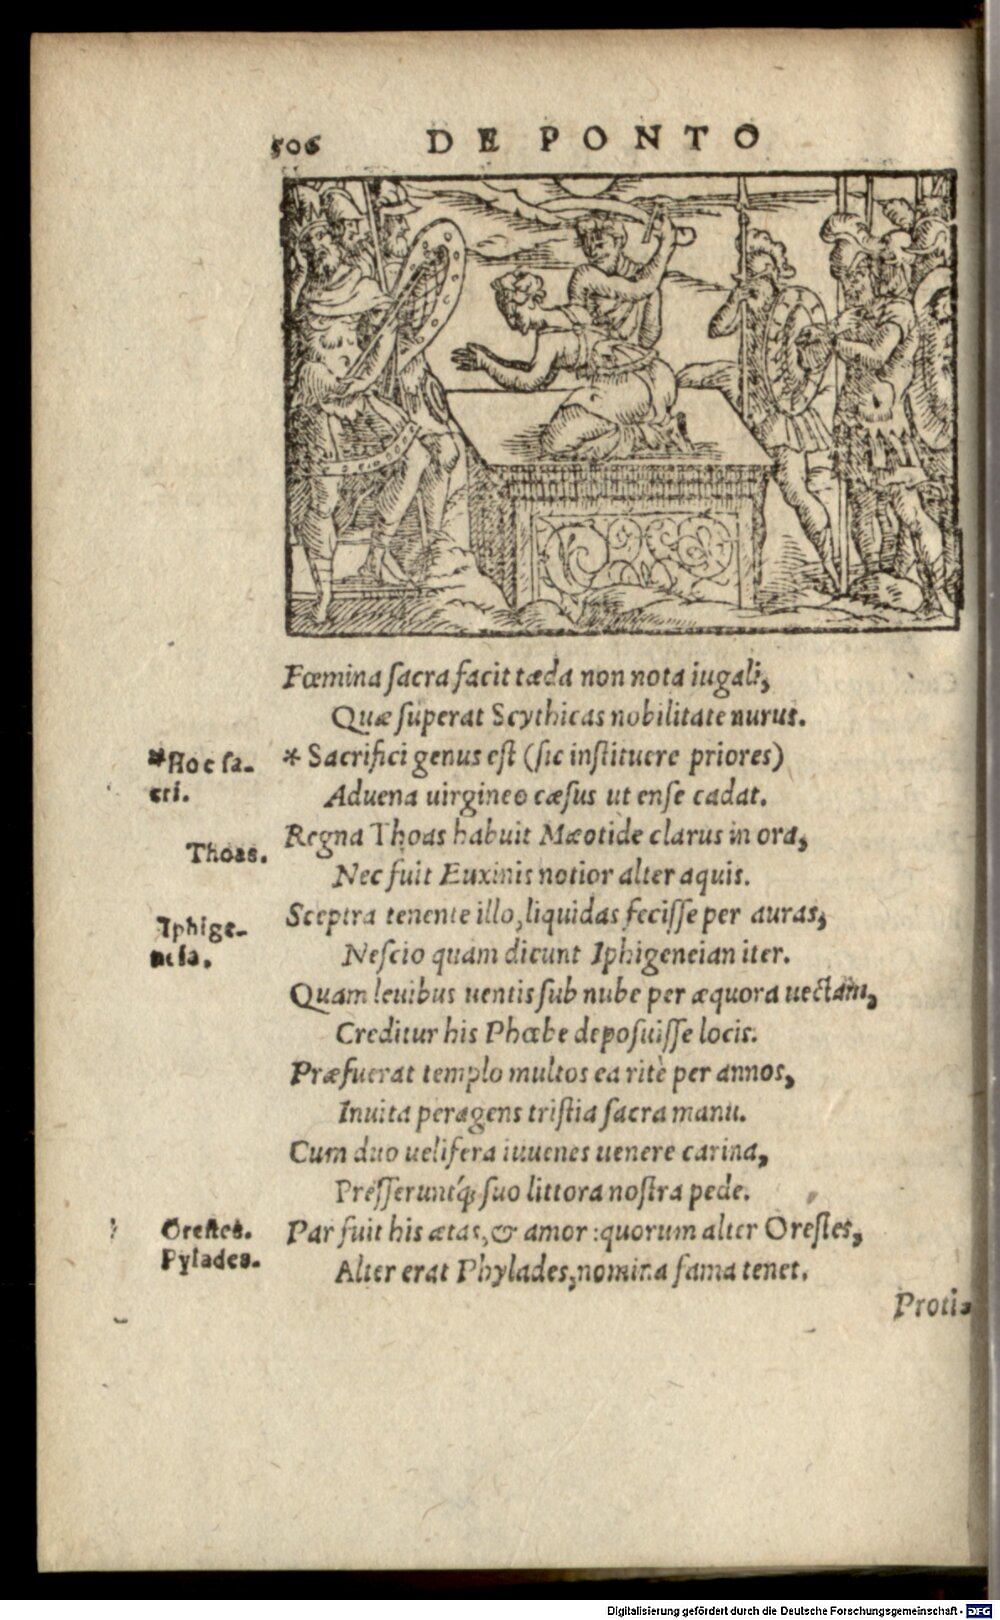 506 DE PONTO
Fœmina sacra facit tæda non nota iugali,
Quæ superat Scythicas nobilitate nurus.
*Hoc sa-
cri.
* Sacrifici genus est (sic instituere priores)
Aduena uirgineo cæsus ut ense cadat.
Thoas.
Regna Thoas habuit Mæotide clarus in ora,
Nec fuit Euxinis notior alter aquis.
Iphige-
neia.
Sceptra tenente illo, liquidas fecisse per auras,
Nescio quam dicunt Iphigeneian iter.
Quam leuibus uentis sub nube per æquora uectam,
Creditur his Phœbe deposuisse locis.
Præfuerat templo multos ea ritè per annos,
Inuita peragens tristia sacra manu.
Cum duo uelifera iuuenes uenere carina,
Presseruntq́; suo littora nostra pede.
Orestes.
Pylades.
Par fuit his ætas, & amor: quorum alter Orestes,
Alter erat Phylades, nomina fama tenet.
Proti-
Digitalisierung gefördert durch die Deutsche Forschungsgemeinschaft - DFG